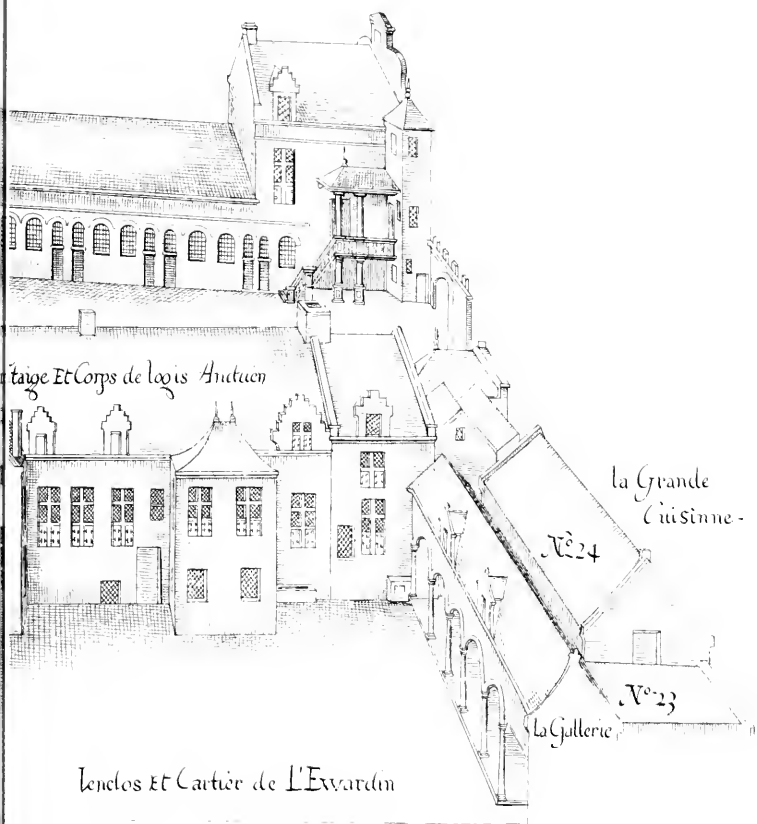 taige Et Corps de logis Anctuen
la Grande
Cuisinne-
No. 24
No. 23
La Gallerie
Lenclos Et Cartier de L'Ewardin